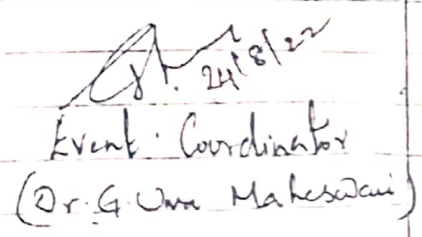 24/8/22
Event. Coordinator
(Dr. G. Uma Maheswari)